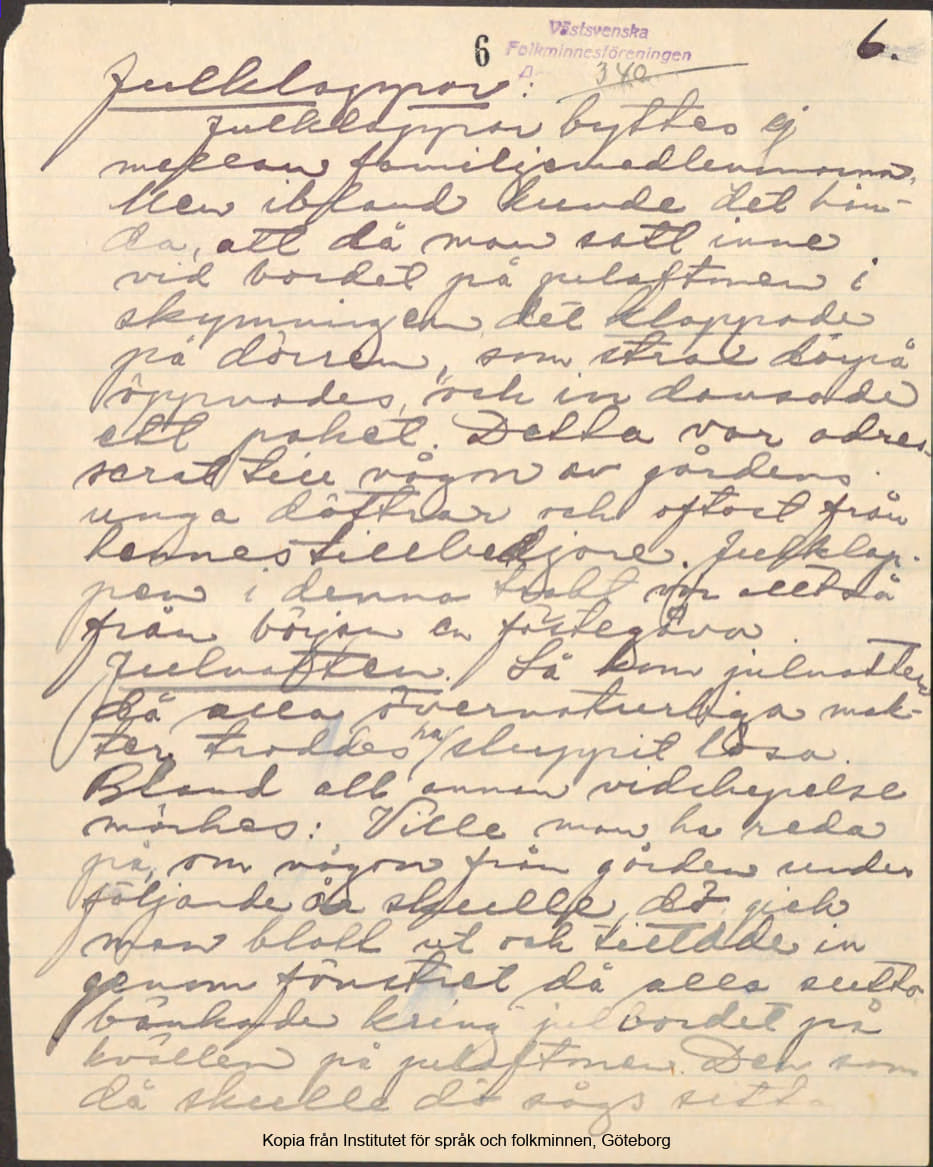 6
Västsvenska
Folkminnesföreningen
A 340
6.
Julklappar:
Julklappar byttes ej
mellan familjemedlemmarna.
Men ibland kunde det hän-
da, att då man satt inne
vid bordet på julaftonen i
skymningen det klappade
på dörren, som strax därpå
öppnades, och in dansade
ett paket. Detta var adres-
serat till någon av gårdens
unga döttrar och oftast från
hennes tillbedjare. Julklap-
pen i denna trakt var alltså
från början en fästegåva.
Julnatten. Så kom julnatten
då alla övernaturliga mak-
ter troddes ha sluppit lösa.
Bland all annan vidskepelse
märkes: Ville man ha reda
på, om någon från gården under
följande år skulle dö, gick
man blott ut och tittade in
genom fönstret då alla sutto
bänkade kring julbordet på
kvällen på julaftonen. Den som
då skulle dö sågs sitta
Kopia från Institutet för språk och folkminnen, Göteborg